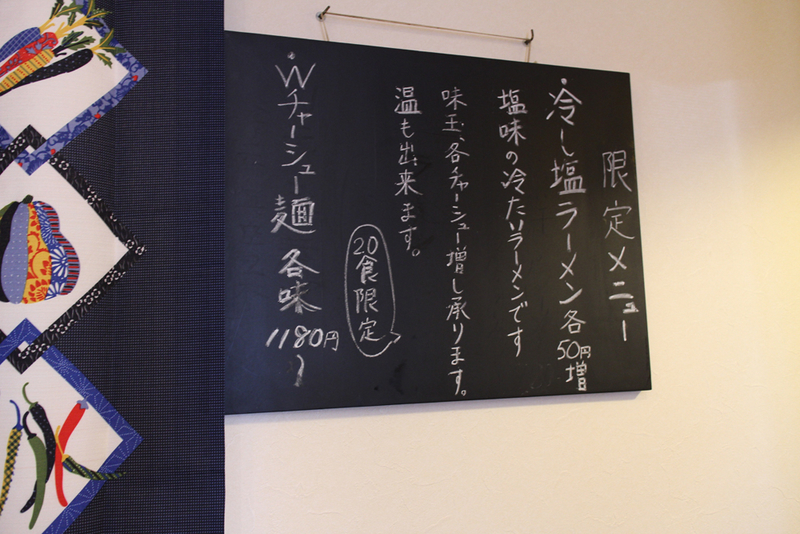 限定メニュー
・冷し塩ラーメン各50円増
塩味の冷たいラーメンです
味玉、各チャーシュー増し承ります。
温も出来ます。
20食限定
・Wチャーシュー麺 各味 1180円〜